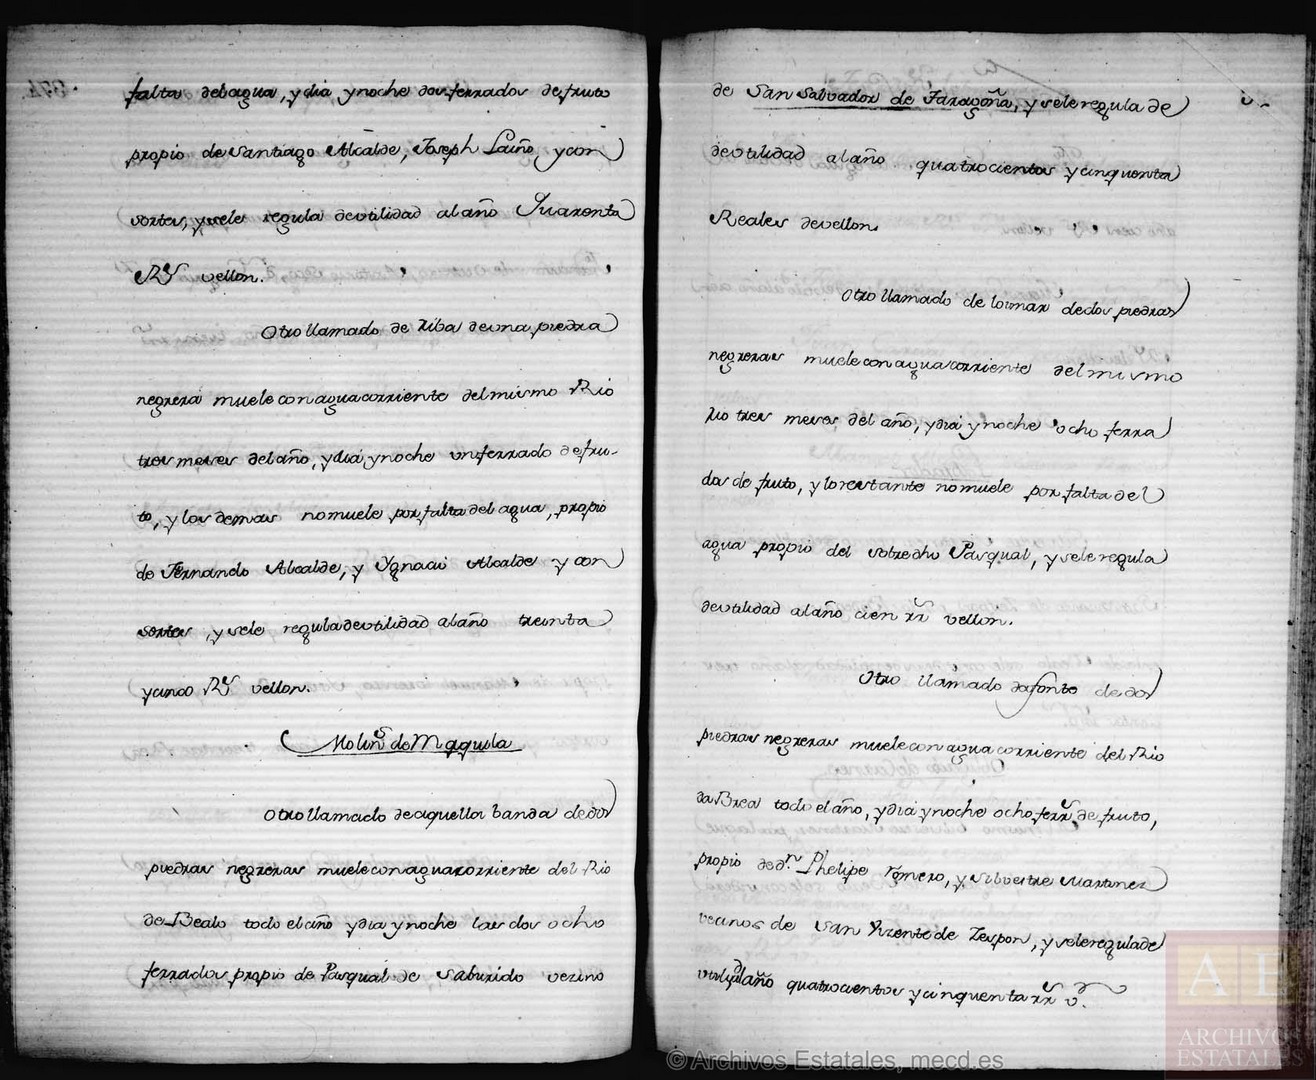 falta del agua, y dia y noche dos ferrados de fruto
propio de Santiago Alcalde, Joseph Laiño y con
sortes, y se le regula de utilidad al año Quarenta
Rs vellon.
Otro llamado de Riba de una piedra
negrera muele con agua corriente del mismo Rio
tres meses del año, y dia y noche un ferrado de fru-
to, y los demas no muele por falta del agua, propio
de Fernando Alcalde, y Ygnacio Alcalde y con
sortes, y se le regula de utilidad al año treinta
y cinco Rs vellon.
Molins de Maquila
Otro llamado de aquella banda de dos
piedras negreras muele con agua corriente del Rio
de Bealo todo el año y dia y noche las dos ocho
ferrados propio de Pasqual de Saburido vezino
de San Salvador de Taragoña, y se le regula de
de utilidad al año quatrocientos y cinquenta
Reales de vellon.
Otro llamado de de dos piedras
negreras muele con agua corriente del mismo
Rio tres meses del año, y dia y noche ocho ferra
dos de fruto, y lo restante no muele por falta del
agua propio del sobredho Pasqual, y se le regula
de utilidad al año cien rrs vellon.
Otro llamado dafonte de dos
piedras negreras muele con agua corriente del Rio
da Brea todo el año, y dia y noche ocho ferrs de fruto,
propio de dn Phelipe Romero, y Silvestre Martinez
vecinos de San Vizente de Zespon, y se le regula de
utilydd al año quatrocientos y cinquenta rrs vn.
© Archivos Estatales, mecd.es
AE
ARCHIVOS
ESTATALES